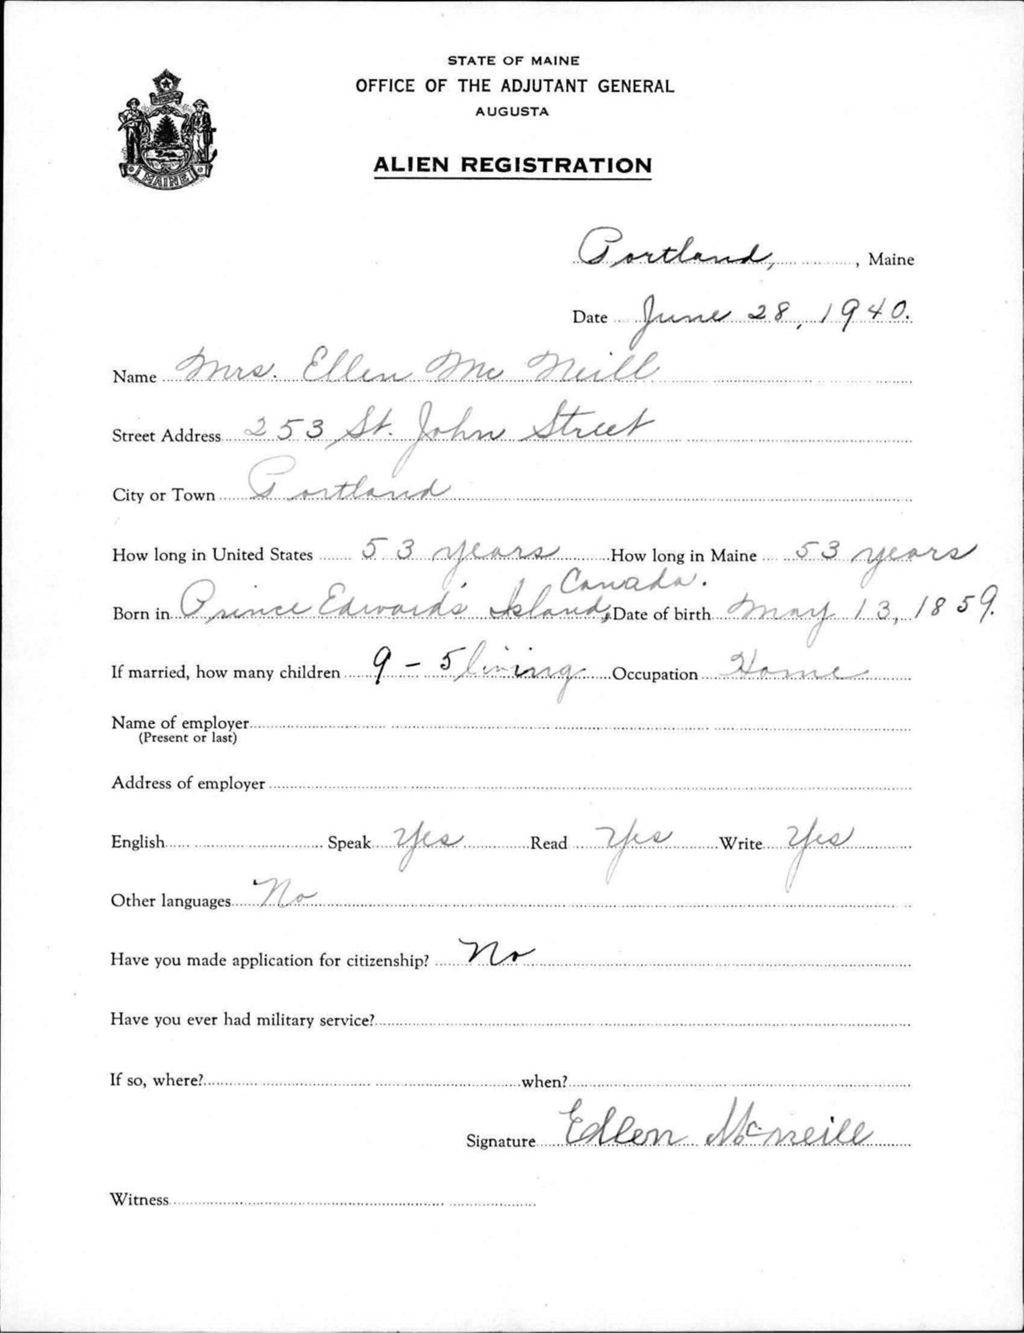 STATE OF MAINE
OFFICE OF THE ADJUTANT GENERAL
AUGUSTA
ALIEN REGISTRATION
MAINE
Portland, , Maine
Date June 28, 1940.
Name Mrs. Ellen Mc Neill
Street Address 253 St. John Street
City or Town Portland
How long in United States 53 years How long in Maine 53 years
Canada.
Born in Prince Edward's Island, Date of birth May 13, 1859.
If married, how many children 9 - 5 living Occupation Home
Name of employer
(Present or last)
Address of employer
English Speak Yes Read Yes Write Yes
Other languages No
Have you made application for citizenship? No
Have you ever had military service?
If so, where? when?
Signature Ellen McNeill
Witness